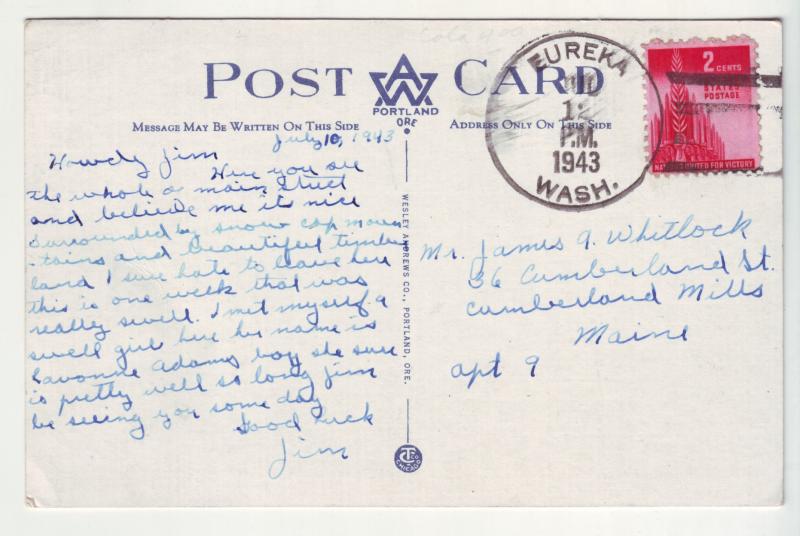 POST CARD
AW
PORTLAND
ORE.
MESSAGE MAY BE WRITTEN ON THIS SIDE
ADDRESS ONLY ON THIS SIDE
EUREKA
12
P.M.
1943
WASH.
2 CENTS
STATES
POSTAGE
NATIONS UNITED FOR VICTORY
July 10, 1943
Howdy Jim
Here you see
the whole of main street
and believe me its nice
surrounded by snow cap moun
-tains and beautiful timber
land I sure hate to leave here
this is one week that was
really swell. I met myself a
swell girl here her name is
Lavonne Adams boy she sure
is pretty well so long Jim
be seeing you some day
Good Luck
Jim
WESLEY ANDREWS CO., PORTLAND, ORE.
CHICAGO
Mr. James A. Whitlock
36 Cumberland St.
Cumberland Mills
Maine
apt 9